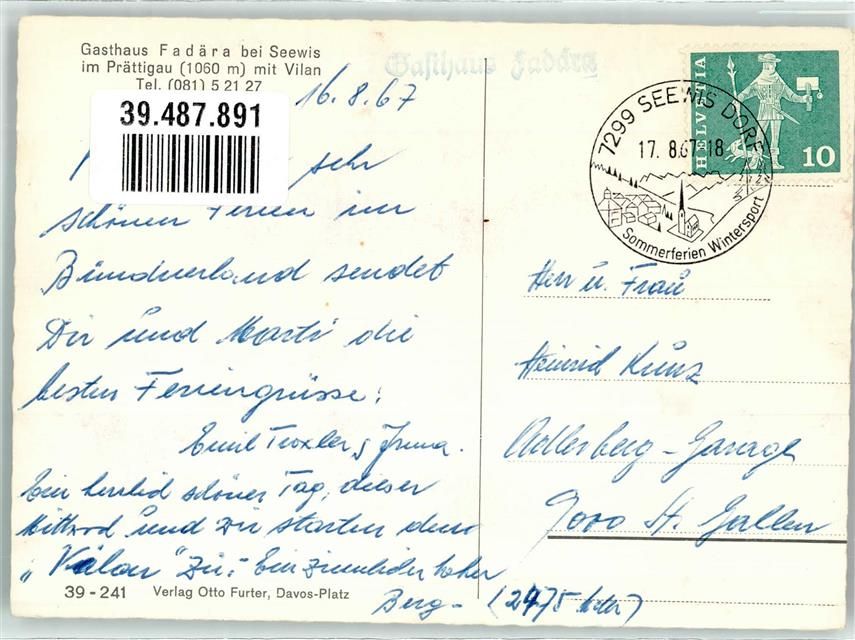 Gasthaus Fadära bei Seewis
im Prättigau (1060 m) mit Vilan
Tel. (081) 5 21 27
Gasthaus Fadära
16.8.67
39.487.891
sehr
schönen Ferien im
Bündnerland sendet
Dir und Marti die
besten Feriengrüsse:
Emil Troxler, Irma.
Ein herrlich schöner Tag, dieser
Mittwoch und wir starten dem
"Vilan" zu;- Ein ziemlicher hoher
Berg - (2475 Meter)
39-241 Verlag Otto Furter, Davos-Platz
7299 SEEWIS DORF
17. 8.67-18
Sommerferien Wintersport
HELVETIA
10
Herr u. Frau
Heinrich Kunz
Adlerberg-Garage
9000 St. Gallen